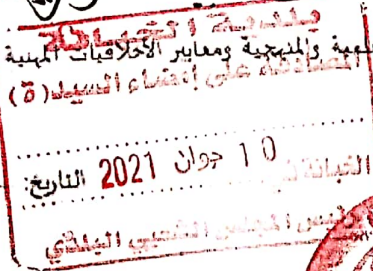 بلدية الخبانة
لمية والمنهجية ومعايير الأخلاقيات المهنية
المصادقة على إمضاء السيد(ة)
التاريخ: 10 جوان 2021
الخبانة
رئيس المجلس الشعبي البلدي